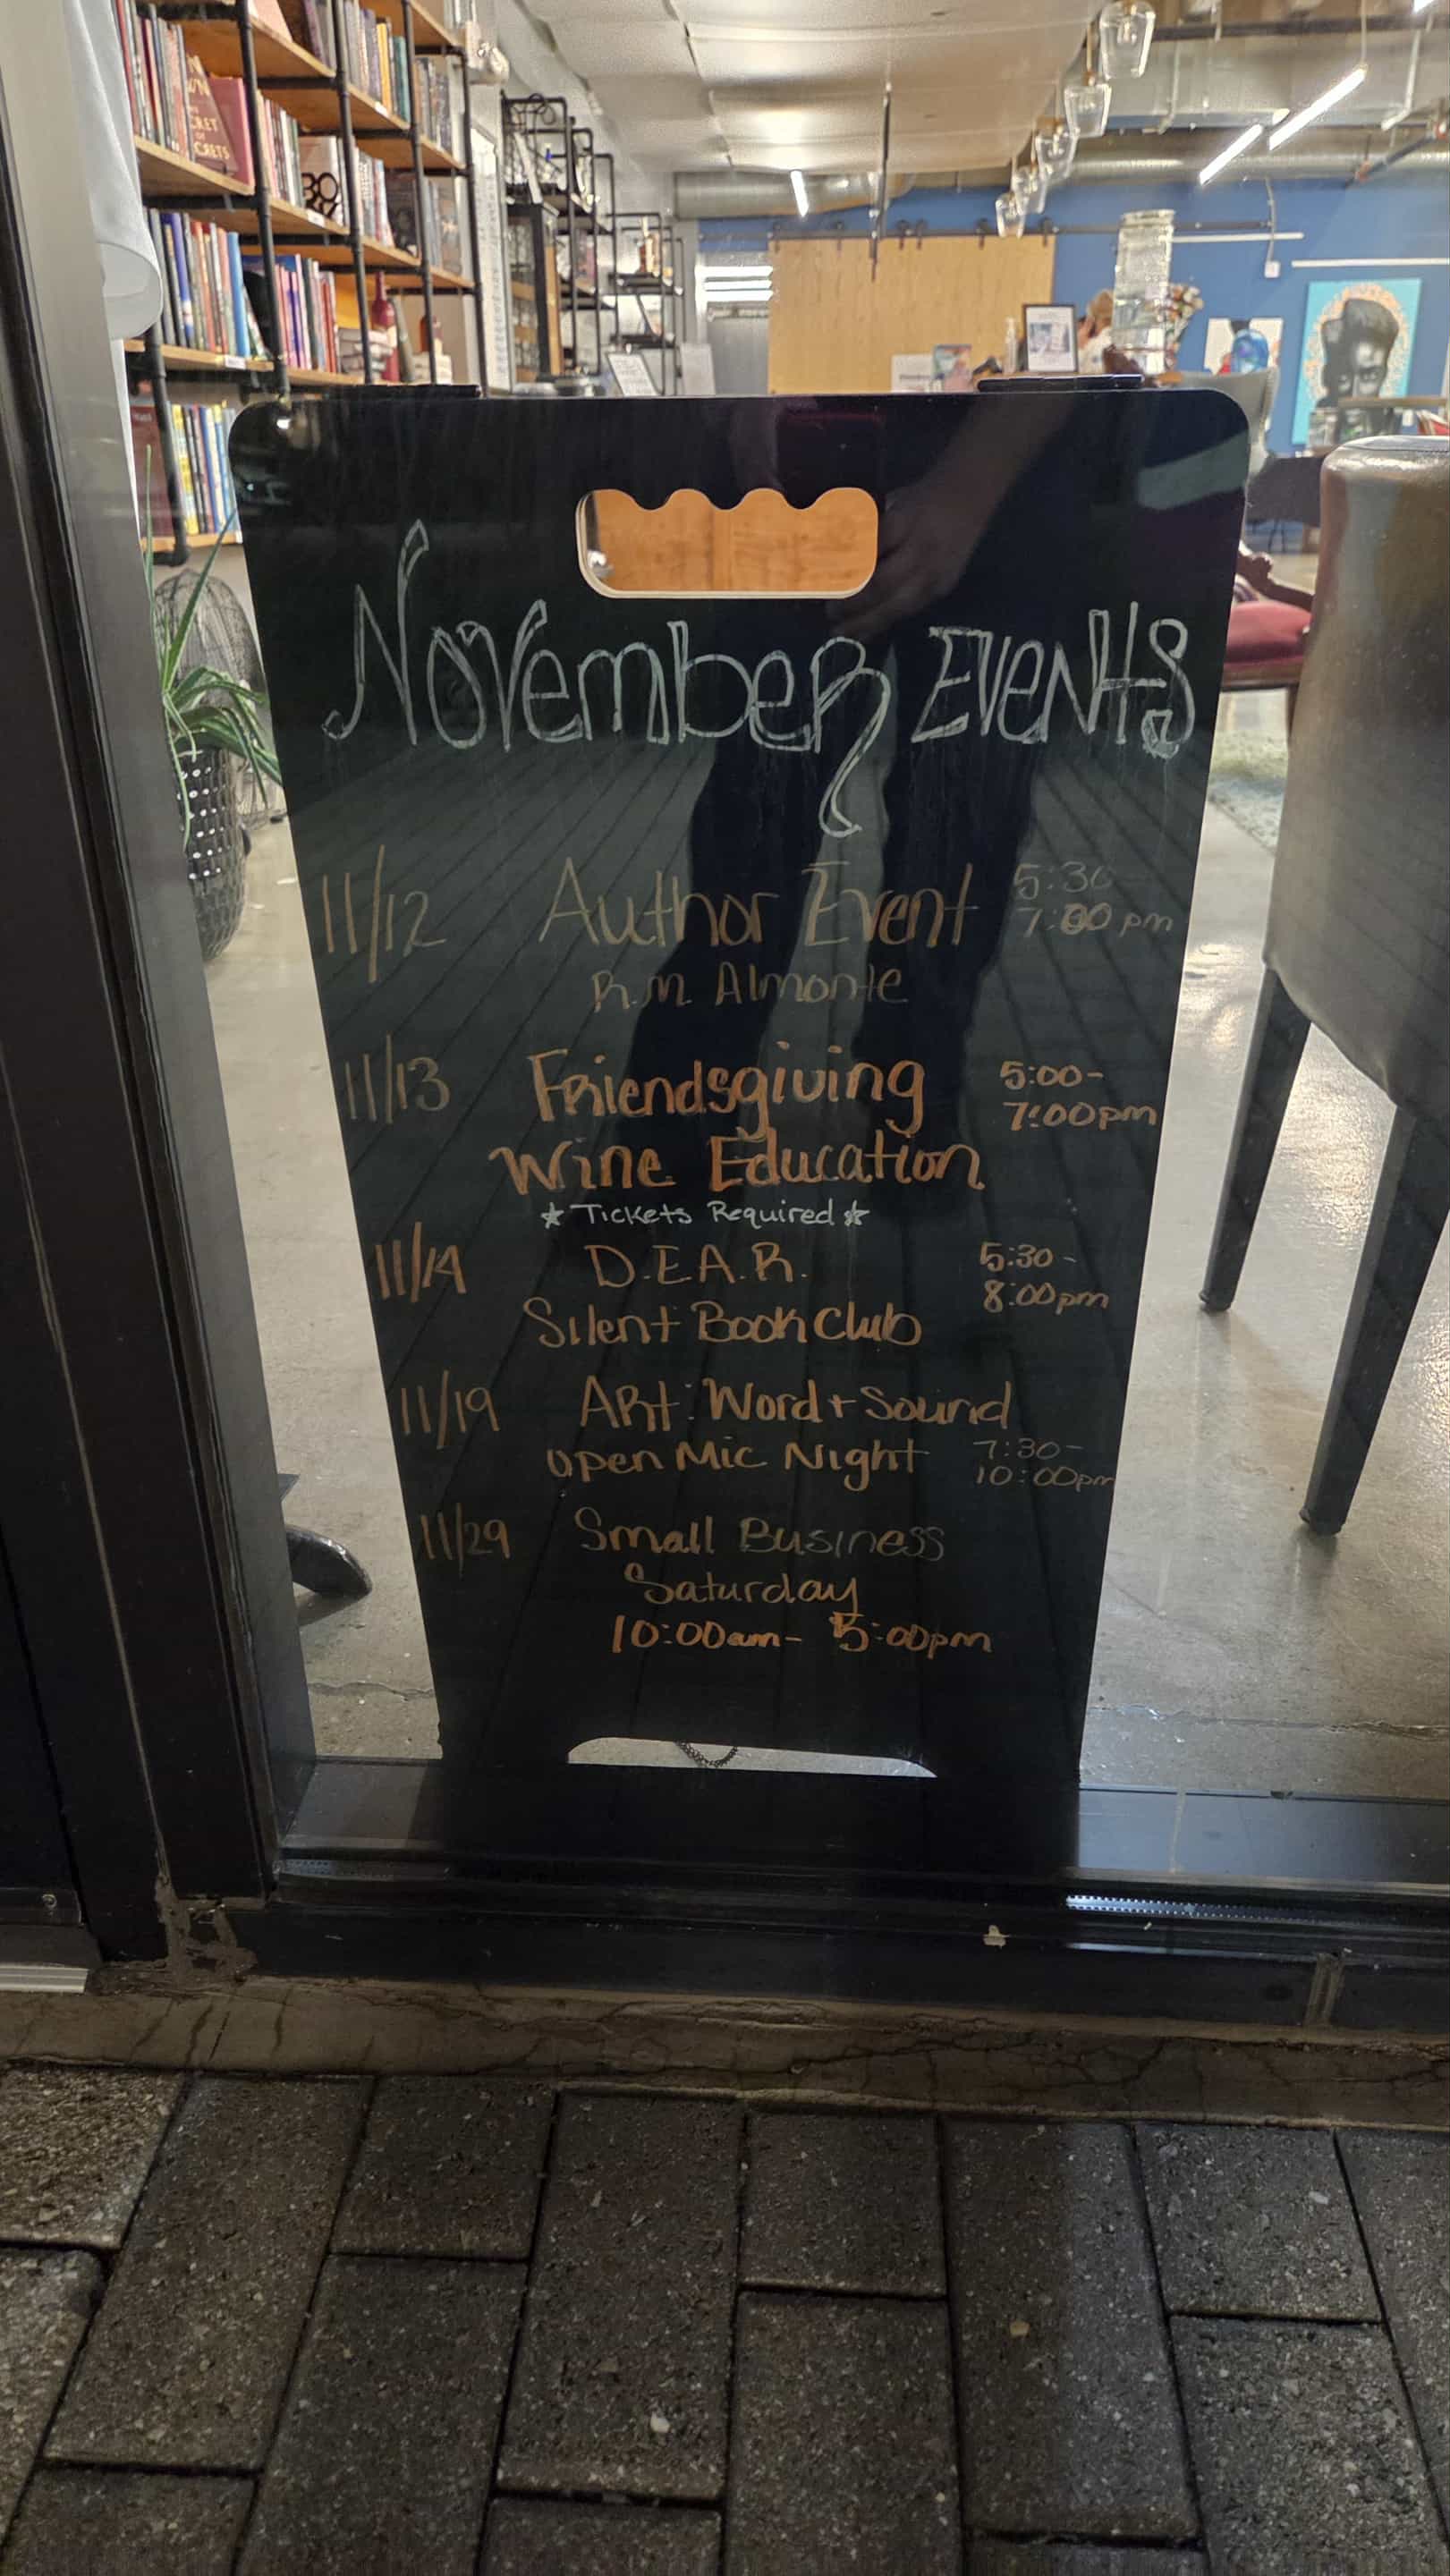 November Events
11/12 Author Event 5:30
7:00pm
R.M. Almonte
11/13 Friendsgiving 5:00-
7:00pm
Wine Education
★ Tickets Required ★
11/14 D.E.A.R. 5:30-
8:00pm
Silent Book Club
11/19 Art: Word + Sound
Open Mic Night 7:30-
10:00pm
11/29 Small Business
Saturday
10:00am- 5:00pm